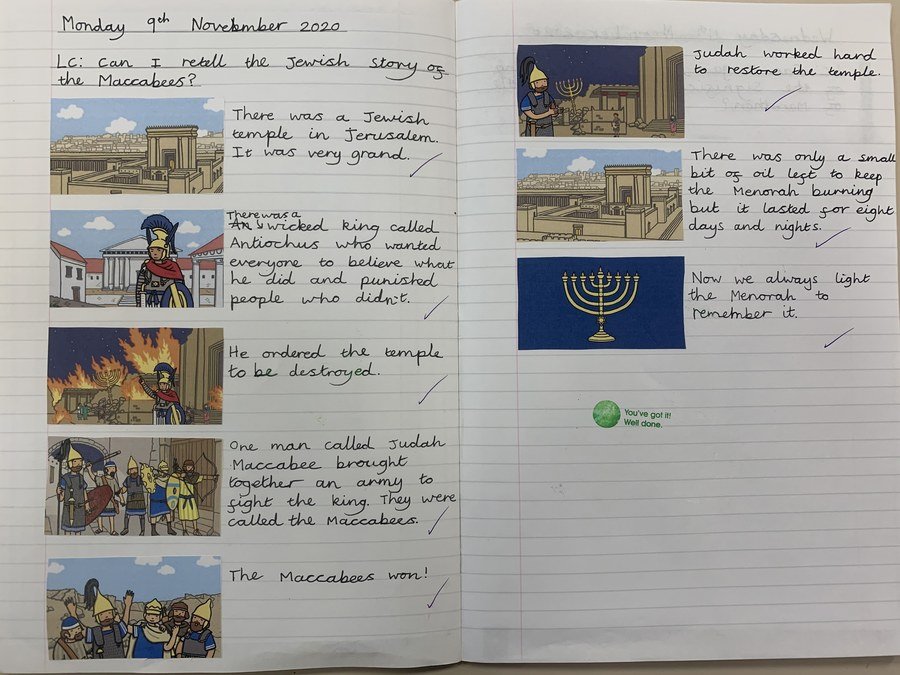 Monday 9th November 2020
LC: Can I retell the Jewish story of
the Maccabees?
There was a Jewish
temple in Jerusalem.
It was very grand.
There was a
wicked king called
Antiochus who wanted
everyone to believe what
he did and punished
people who didn't.
He ordered the temple
to be destroyed.
One man called Judah
Maccabee brought
together an army to
fight the king. They were
called the Maccabees.
The Maccabees won!
Judah worked hard
to restore the temple.
There was only a small
bit of oil left to keep
the Menorah burning
but it lasted for eight
days and nights.
Now we always light
the Menorah to
remember it.
You've got it!
Well done.